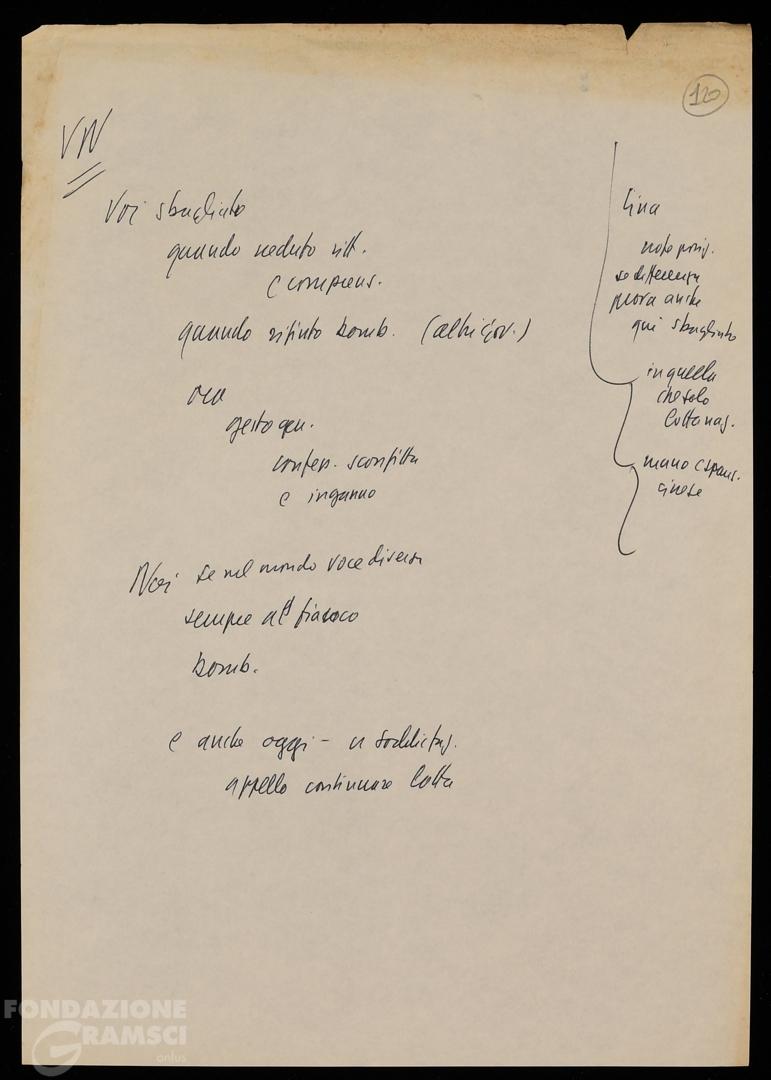 120
VN
Voi sbagliato
quando veduto vitt.
e compens.
quando rifiuto bomb. (altri gov.)
ora
gesto gen.
confes. sconfitta
e inganno
Noi se nel mondo voce diversa
sempre al fianco
bomb.
e anche oggi –
appello continuare lotta
Cina
note posiz.
se differenza
prova anche
qui sbagliato
in quella
che solo
lotta naz.
mano espans.
cinese
FONDAZIONE
GRAMSCI
onlus